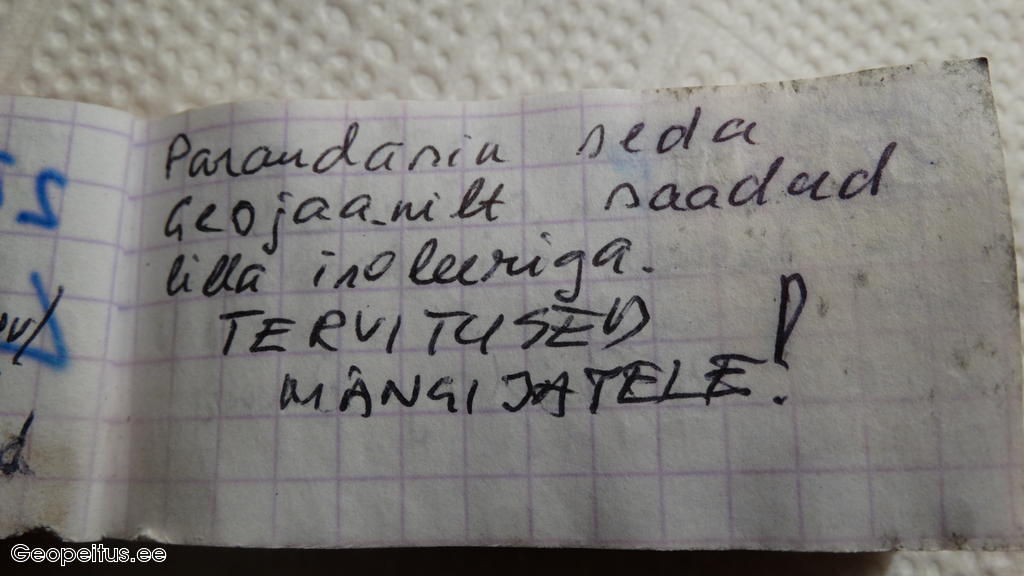 Parandasin seda
Geojaanilt saadud
lilla isoleeriga.
TERVITUSED
MÄNGIJATELE!
Geopeitus.ee